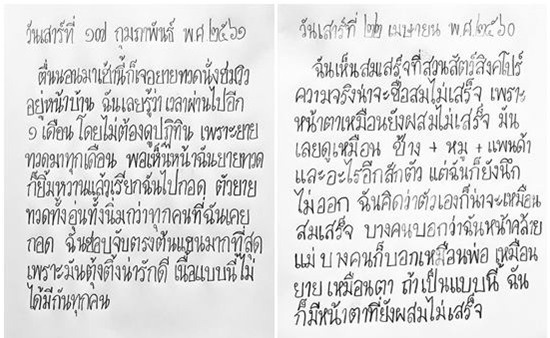 วันเสาร์ที่ ๑๗ กุมภาพันธ์ พ.ศ ๒๕๖๑
ตื่นนอนมาเช้านี้ก็เจอยายทวดนั่งชมวิว
อยู่หน้าบ้าน ฉันเลยรู้ว่า เวลาผ่านไปอีก
๑ เดือน โดยไม่ต้องดูปฏิทิน เพราะยาย
ทวดมาทุกเดือน พอเห็นหน้าฉันยายทวด
ก็ยิ้มหวานแล้วเรียกฉันไปกอด ตัวยาย
ทวดทั้งอุ่นทั้งนิ่มกว่าทุกคนที่ฉันเคย
กอด ฉันชอบจับตรงต้นแขนมากที่สุด
เพราะมันตุ้งติ้งน่ารักดี เนื้อแบบนี้ไม่
ได้มีกันทุกคน
วันเสาร์ที่ ๒๒ เมษายน พ.ศ.๒๕๖๐
ฉันเห็นสมเสร็จที่สวนสัตว์สิงคโปร์
ความจริงน่าจะชื่อสมไม่เสร็จ เพราะ
หน้าตาเหมือนยังผสมไม่เสร็จ มัน
เลยดูเหมือน ช้าง + หมู + แพนด้า
และอะไรอีกสักตัว แต่ฉันก็ยังนึก
ไม่ออก ฉันคิดว่าตัวเองก็น่าจะเหมือน
สมเสร็จ บางคนบอกว่าฉันหน้าคล้าย
แม่ บางคนก็บอกเหมือนพ่อ เหมือน
ยาย เหมือนตา ถ้าเป็นแบบนี้ ฉัน
ก็มีหน้าตาที่ยังผสมไม่เสร็จ